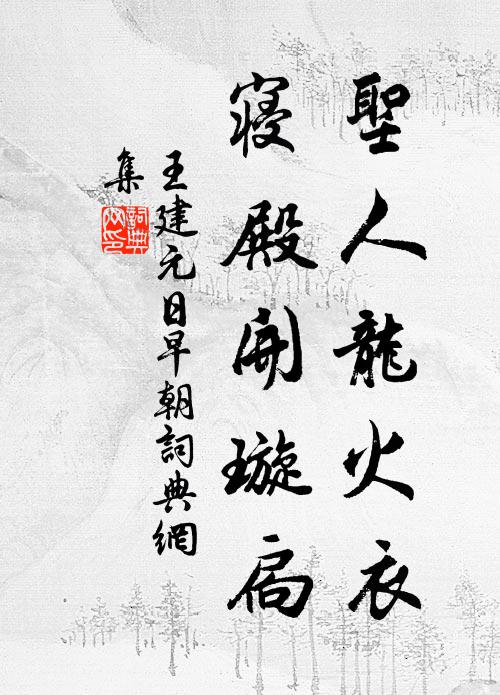 聖人龍火衣
寢殿開璇扃
王建元日早朝詞典網
集
詞典
网印